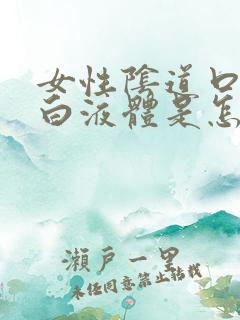 女性陰道口
白液體是怎
瀨戶一里
未經同意禁止轉載